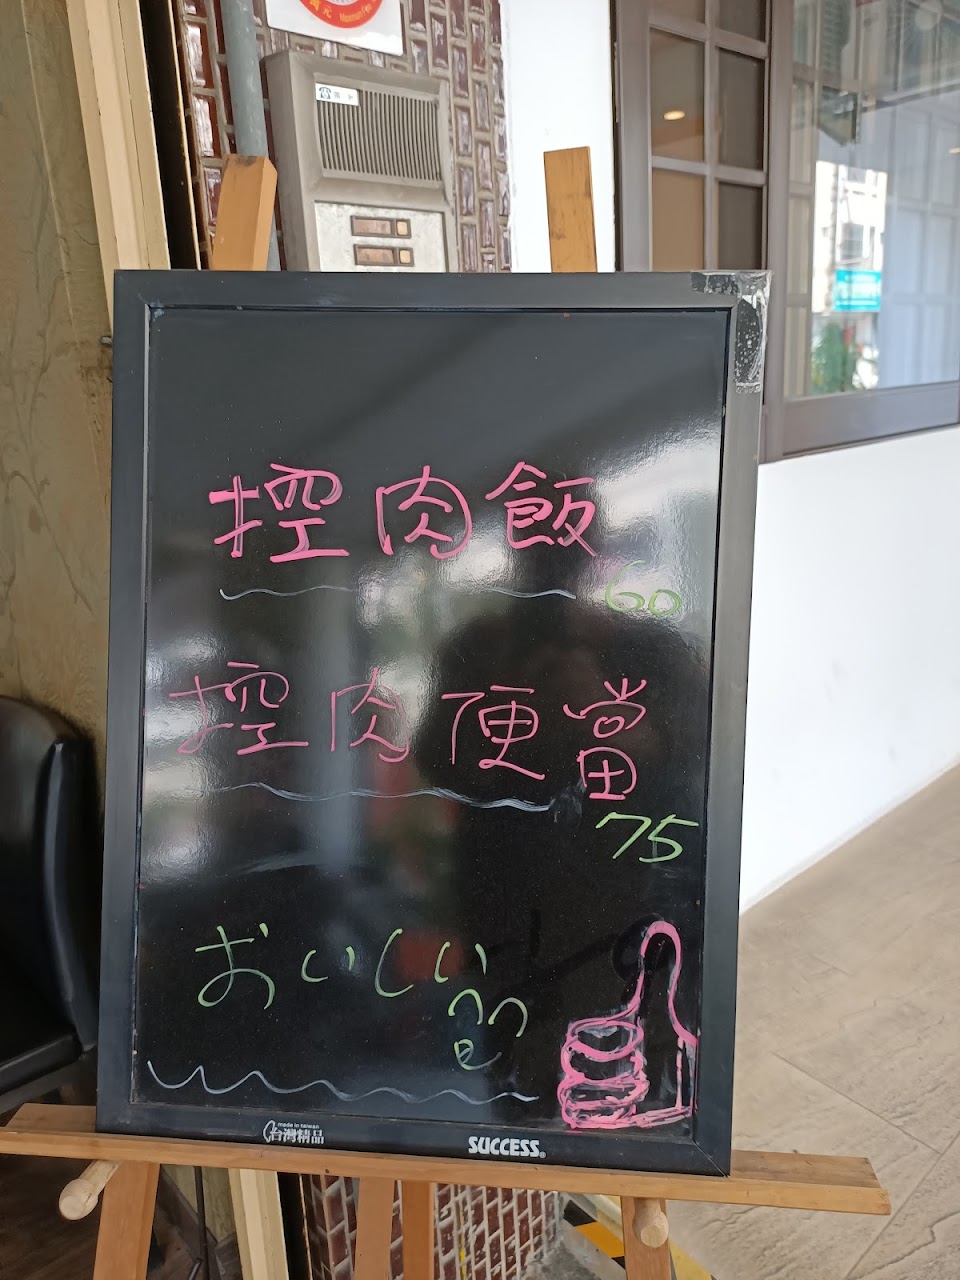 控肉飯
60
控肉便當
75
おいしい
made in taiwan
台灣精品
SUCCESS®